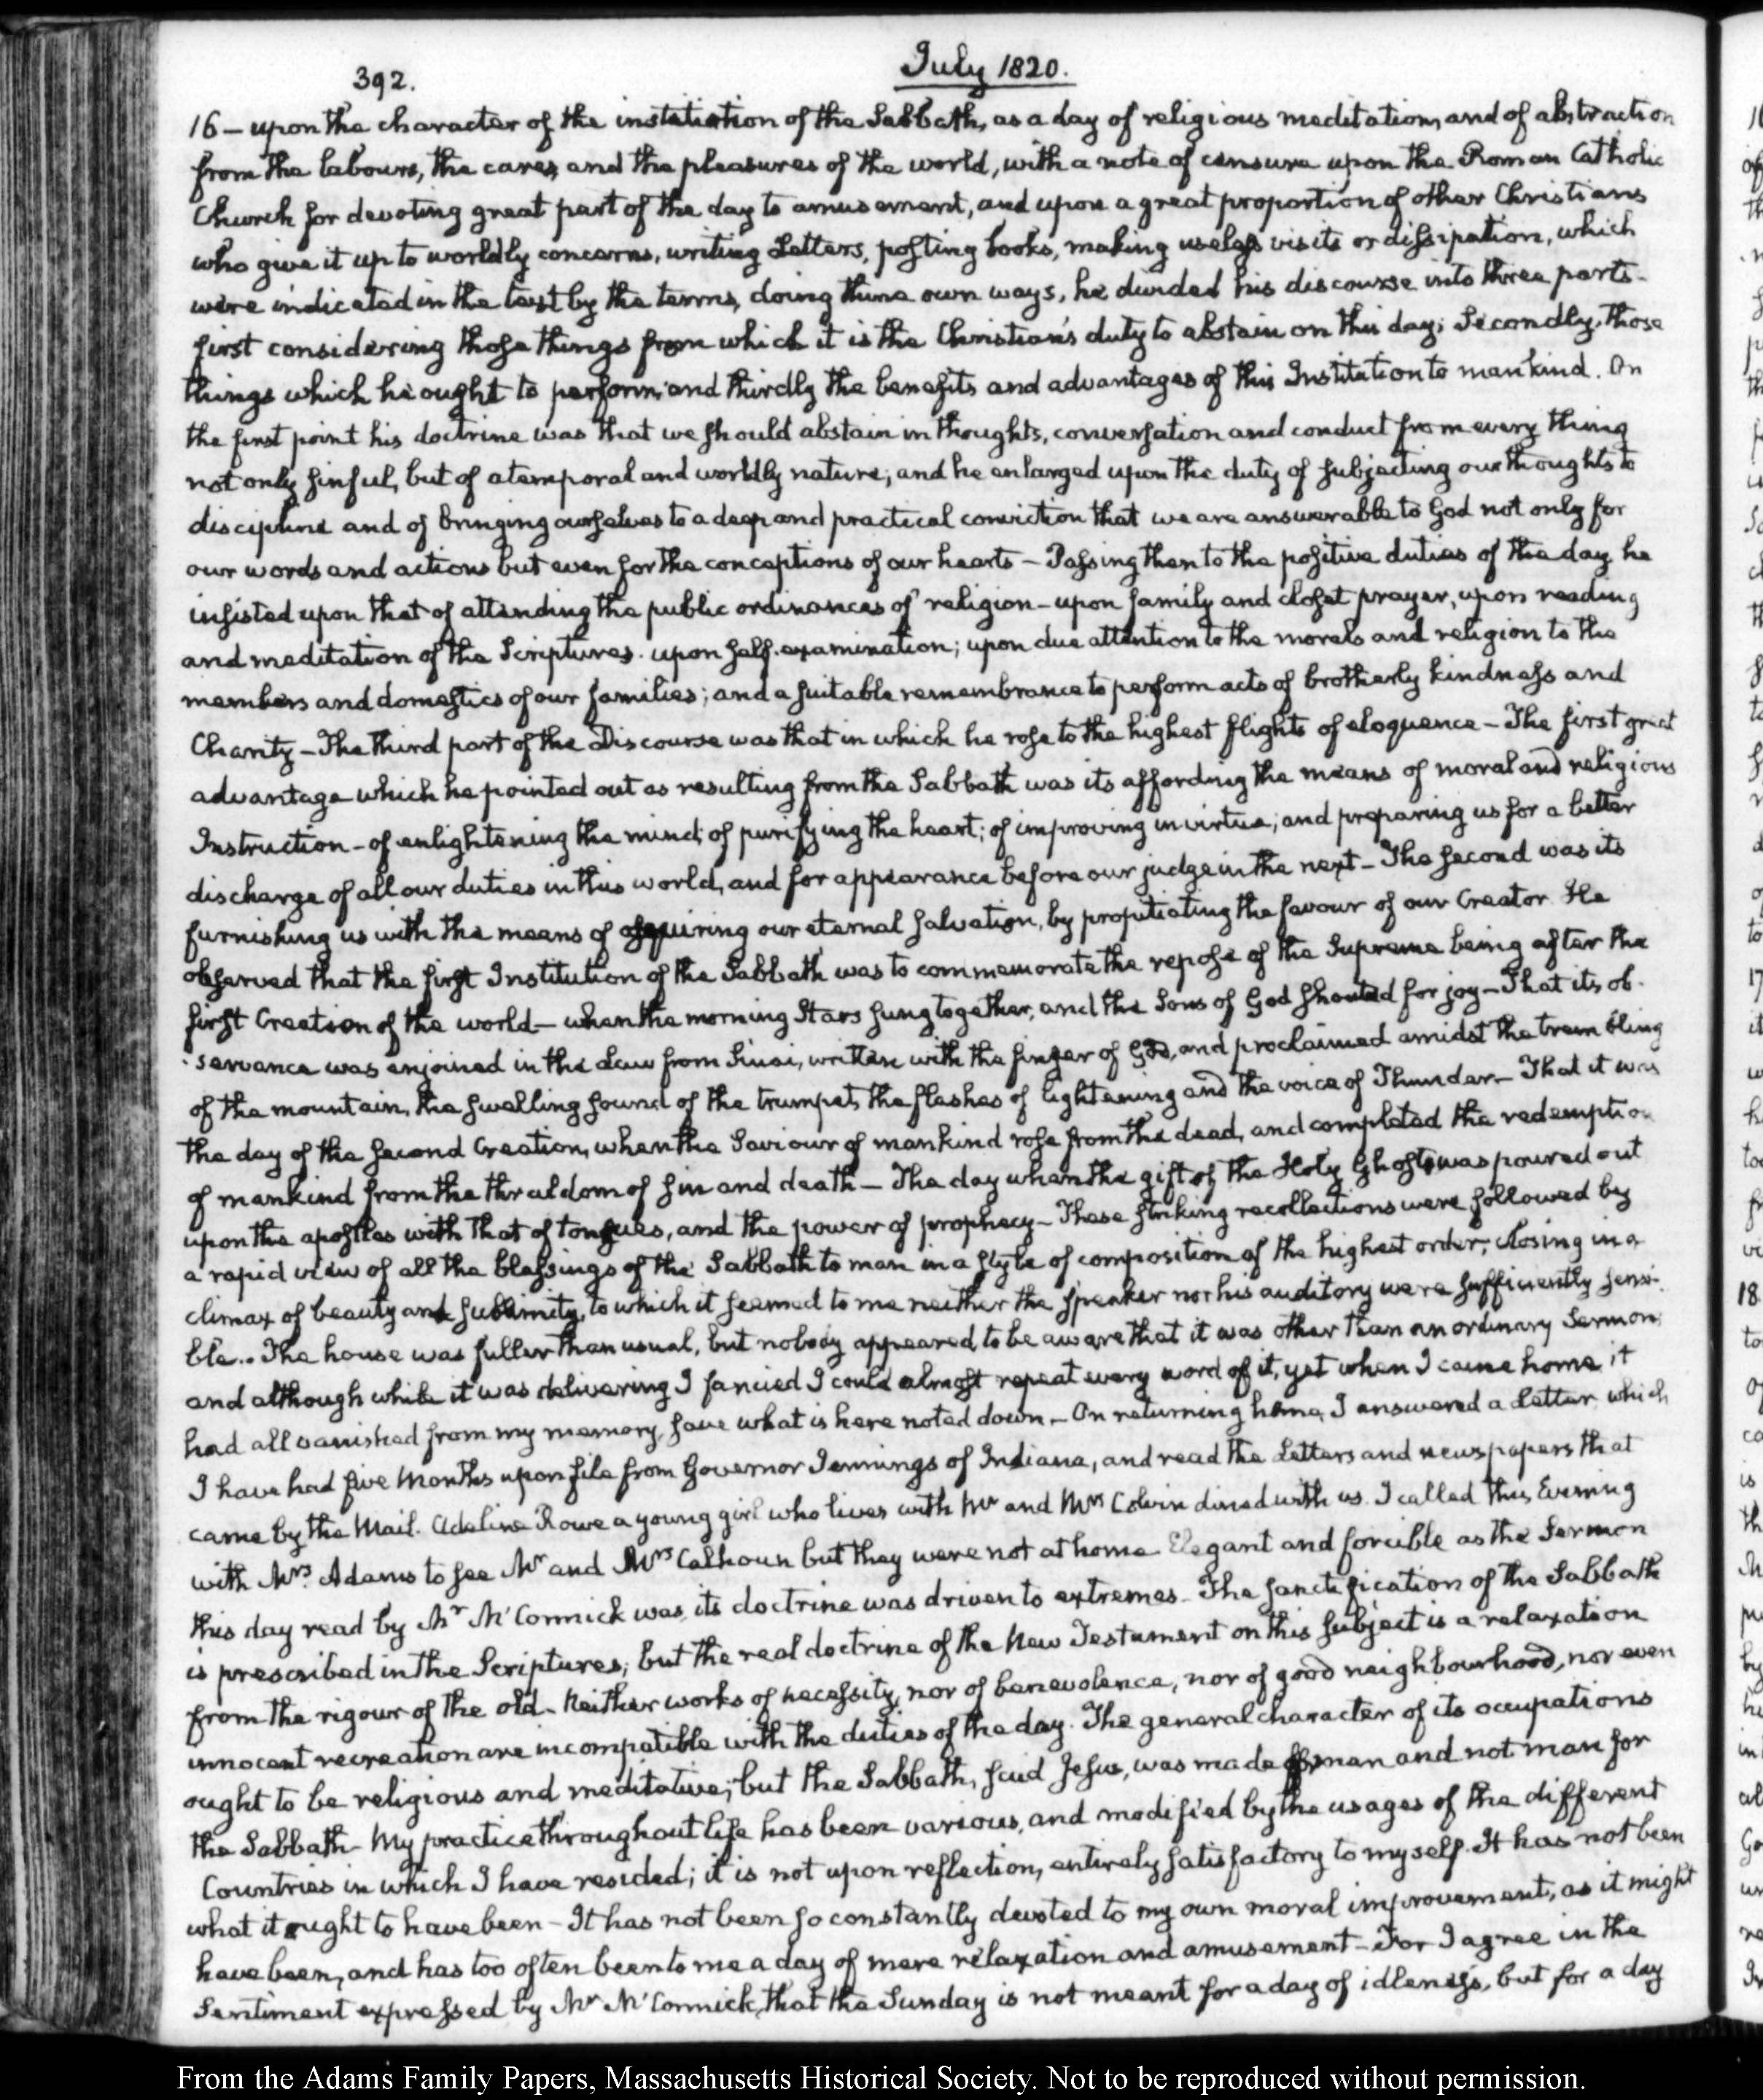 392.
July 1820.
16 — upon the character of the institution of the Sabbath, as a day of religious meditation, and of abstraction
from the labours, the cares, and the pleasures of the world, with a note of censure upon the Roman Catholic
Church for devoting great part of the day to amusement, and upon a great proportion of other Christians
who give it up to worldly concerns, writing Letters, posting books, making useless visits or dissipation, which
were indicated in the text by the terms, doing thine own ways, he divided his discourse into three parts-
first considering those things from which it is the Christian's duty to abstain on this day; Secondly, those
things which he ought to perform; and thirdly the benefits and advantages of this Institution to mankind. On
the first point his doctrine was that we should abstain in thoughts, conversation and conduct from every thing
not only sinful, but of a temporal and worldly nature; and he enlarged upon the duty of subjecting our thoughts to
discipline and of bringing ourselves to a deep and practical conviction that we are answerable to God not only for
our words and actions but even for the conceptions of our hearts — Passing then to the positive duties of the day he
insisted upon that of attending the public ordinances of religion - upon family and closet prayer, upon reading
and meditation of the Scriptures. upon self-examination; upon due attention to the morals and religion to the
members and domestics of our families; and a suitable remembrance to perform acts of brotherly kindness and
Charity — The third part of the Discourse was that in which he rose to the highest flights of eloquence — The first great
advantage which he pointed out as resulting from the Sabbath was its affording the means of moral and religious
Instruction - of enlightening the mind; of purifying the heart; of improving in virtue; and preparing us for a better
discharge of all our duties in this world, and for appearance before our judge in the next — The second was its
furnishing us with the means of acquiring our eternal salvation, by propitiating the favour of our Creator He
observed that the first Institution of the Sabbath was to commemorate the repose of the Supreme being after the
first Creation of the world — when the morning Stars sung together, and the Sons of God shouted for joy — That its ob-
-servance was enjoined in the Law from Sinai, written with the finger of God, and proclaimed amidst the trembling
of the mountain, the swelling sound of the trumpet, the flashes of lightening and the voice of Thunder — That it was
the day of the second Creation, when the Saviour of mankind rose from the dead, and completed the redemption
of mankind from the thraldom of sin and death — The day when the gift of the Holy Ghost, was poured out
upon the apostles with that of tongues, and the power of prophecy — These striking recollections were followed by
a rapid view of all the blessings of the Sabbath to man in a style of composition of the highest order; closing in a
climax of beauty and sublimity, to which it seemed to me neither the speaker nor his auditory were sufficiently sensi-
ble.. The house was fuller than usual, but nobody appeared to be aware that it was other than an ordinary Sermon;
and although while it was delivering I fancied I could almost repeat every word of it, yet when I came home it
had all vanished from my memory, save what is here noted down — On returning home, I answered a Letter which
I have had five Months upon file from Governor Jennings of Indiana, and read the Letters and newspapers that
came by the Mail. Adeline Rowe a young girl who lives with Mr and Mrs Colvin dined with us. I called this Evening
with Mrs. Adams to see Mr and Mrs Calhoun but they were not at home. Elegant and forcible as the Sermon
this day read by Mr McCormick was, its doctrine was driven to extremes. The sanctification of the Sabbath
is prescribed in the Scriptures; but the real doctrine of the New Testament on this subject is a relaxation
from the rigour of the old. Neither works of necessity, nor of benevolence, nor of good neighbourhood, nor even
innocent recreation are incompatible with the duties of the day. The general character of its occupations
ought to be religious and meditative; but the Sabbath, said Jesus, was made for man and not man for
the Sabbath — My practice throughout life has been various, and modified by the usages of the different
Countries in which I have resided; it is not upon reflection, entirely satisfactory to myself. It has not been
what it ought to have been — It has not been so constantly devoted to my own moral improvement, as it might
have been, and has too often been to me a day of mere relaxation and amusement — For I agree in the
Sentiment expressed by Mr McCormick, that the Sunday is not meant for a day of idleness, but for a day
From the Adams Family Papers, Massachusetts Historical Society. Not to be reproduced without permission.